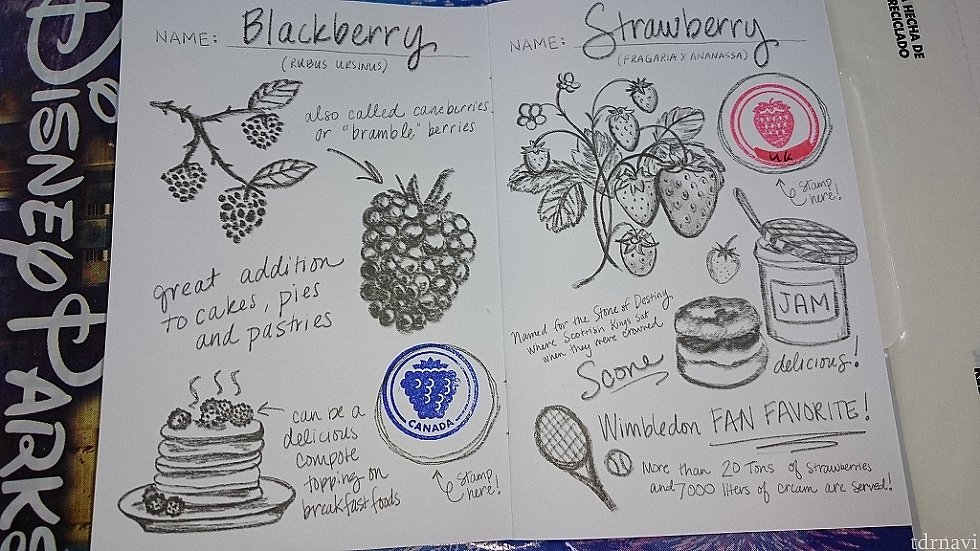 Disney Parks
NAME: Blackberry
(RUBUS URSINUS)
also called caneberries
or "bramble" berries
great addition
to cakes, pies
and pastries
can be a
delicious
compote
topping on
breakfast foods
CANADA
Stamp
here!
NAME: Strawberry
(FRAGARIA X ANANASSA)
UK
Stamp
here!
JAM
delicious!
Named for the Stone of Destiny
where Scottish Kings sat
when they were crowned
Scone
Wimbledon FAN FAVORITE!
More than 20 Tons of strawberries
and 7000 liters of cream are served!
HECHA DE
RECICLADO
tdrnavi